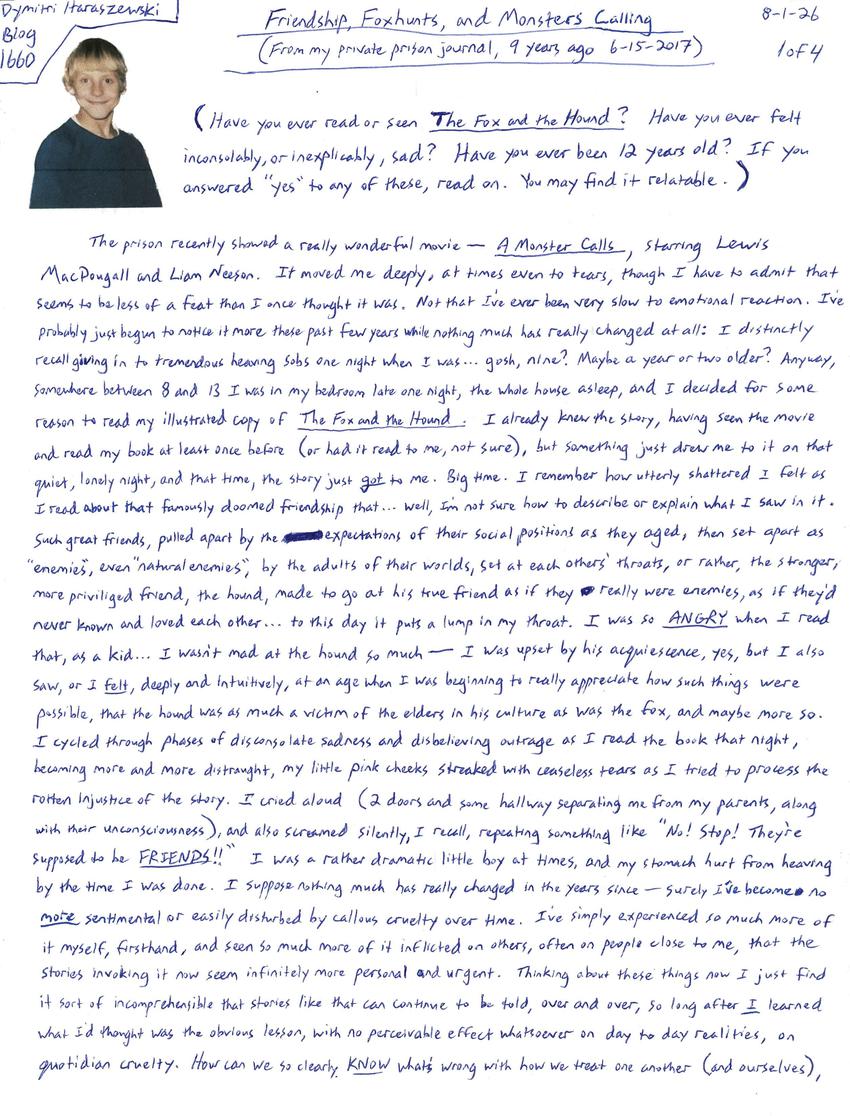 Dymitri Haraszewski
Blog
1660
Friendship, Foxhunts, and Monsters Calling
(From my private prison journal, 9 years ago 6-15-2017)
8-1-26
1 of 4
(Have you ever read or seen The Fox and the Hound? Have you ever felt
inconsolably, or inexplicably, sad? Have you ever been 12 years old? If you
answered "yes" to any of these, read on. You may find it relatable.)
The prison recently showed a really wonderful movie — A Monster Calls, starring Lewis
MacDougall and Liam Neeson. It moved me deeply, at times even to tears, though I have to admit that
seems to be less of a feat than I once thought it was. Not that I've ever been very slow to emotional reaction. I've
probably just begun to notice it more these past few years while nothing much has really changed at all: I distinctly
recall giving in to tremendous heaving sobs one night when I was... gosh, nine? Maybe a year or two older? Anyway,
somewhere between 8 and 13 I was in my bedroom late one night, the whole house asleep, and I decided for some
reason to read my illustrated copy of The Fox and the Hound. I already knew the story, having seen the movie
and read my book at least once before (or had it read to me, not sure), but something just drew me to it on that
quiet, lonely night, and that time, the story just got to me. Big time. I remember how utterly shattered I felt as
I read about that famously doomed friendship that... well, I'm not sure how to describe or explain what I saw in it.
Such great friends, pulled apart by the expectations of their social positions as they aged, then set apart as
"enemies", even "natural enemies", by the adults of their worlds, set at each others' throats, or rather, the stronger,
more priviliged friend, the hound, made to go at his true friend as if they really were enemies, as if they'd
never known and loved each other... to this day it puts a lump in my throat. I was so ANGRY when I read
that, as a kid... I wasn't mad at the hound so much — I was upset by his acquiescence, yes, but I also
saw, or I felt, deeply and intuitively, at an age when I was beginning to really appreciate how such things were
possible, that the hound was as much a victim of the elders in his culture as was the fox, and maybe more so.
I cycled through phases of disconsolate sadness and disbelieving outrage as I read the book that night,
becoming more and more distraught, my little pink cheeks streaked with ceaseless tears as I tried to process the
rotten injustice of the story. I cried aloud (2 doors and some hallway separating me from my parents, along
with their unconsciousness), and also screamed silently, I recall, repeating something like "No! Stop! They're
supposed to be FRIENDS!!" I was a rather dramatic little boy at times, and my stomach hurt from heaving
by the time I was done. I suppose nothing much has really changed in the years since — surely I've become no
more sentimental or easily disturbed by callous cruelty over time. I've simply experienced so much more of
it myself, firsthand, and seen so much more of it inflicted on others, often on people close to me, that the
stories invoking it now seem infinitely more personal and urgent. Thinking about these things now I just find
it sort of incomprehensible that stories like that can continue to be told, over and over, so long after I learned
what I'd thought was the obvious lesson, with no perceivable effect whatsoever on day to day realities, on
quotidian cruelty. How can we so clearly KNOW what's wrong with how we treat one another (and ourselves),